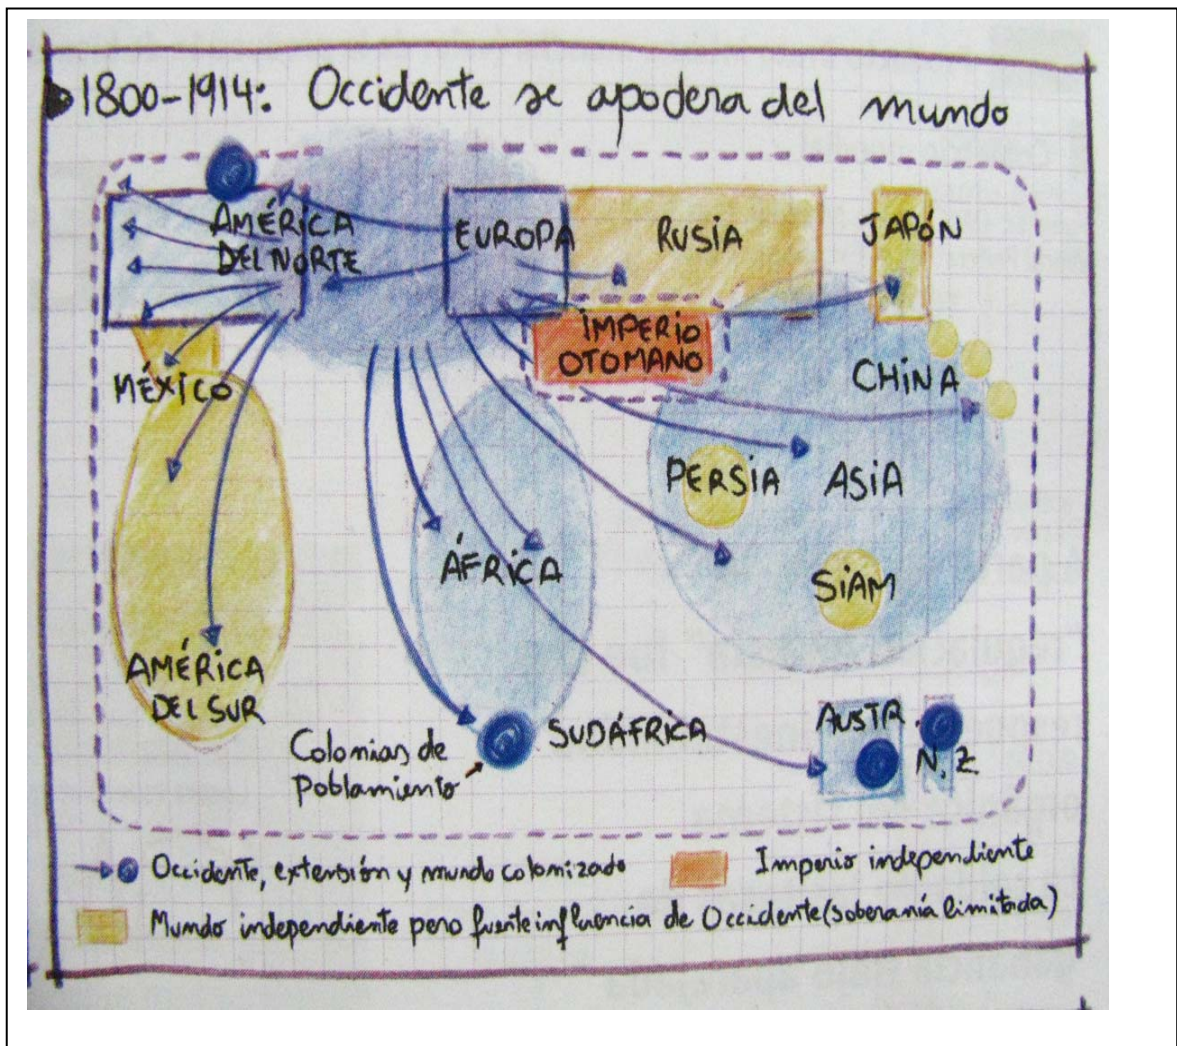 1800-1914: Occidente se apodera del mundo
AMÉRICA
DEL NORTE
EUROPA
RUSIA
JAPÓN
IMPERIO
OTOMANO
MÉXICO
CHINA
PERSIA
ASIA
ÁFRICA
SIAM
AMÉRICA
DEL SUR
Colonias de
Poblamiento
SUDÁFRICA
AUSTR.
N.Z
Occidente, extensión y mundo colonizado
Imperio independiente
Mundo independiente pero fuente influencia de Occidente (soberanía limitada)